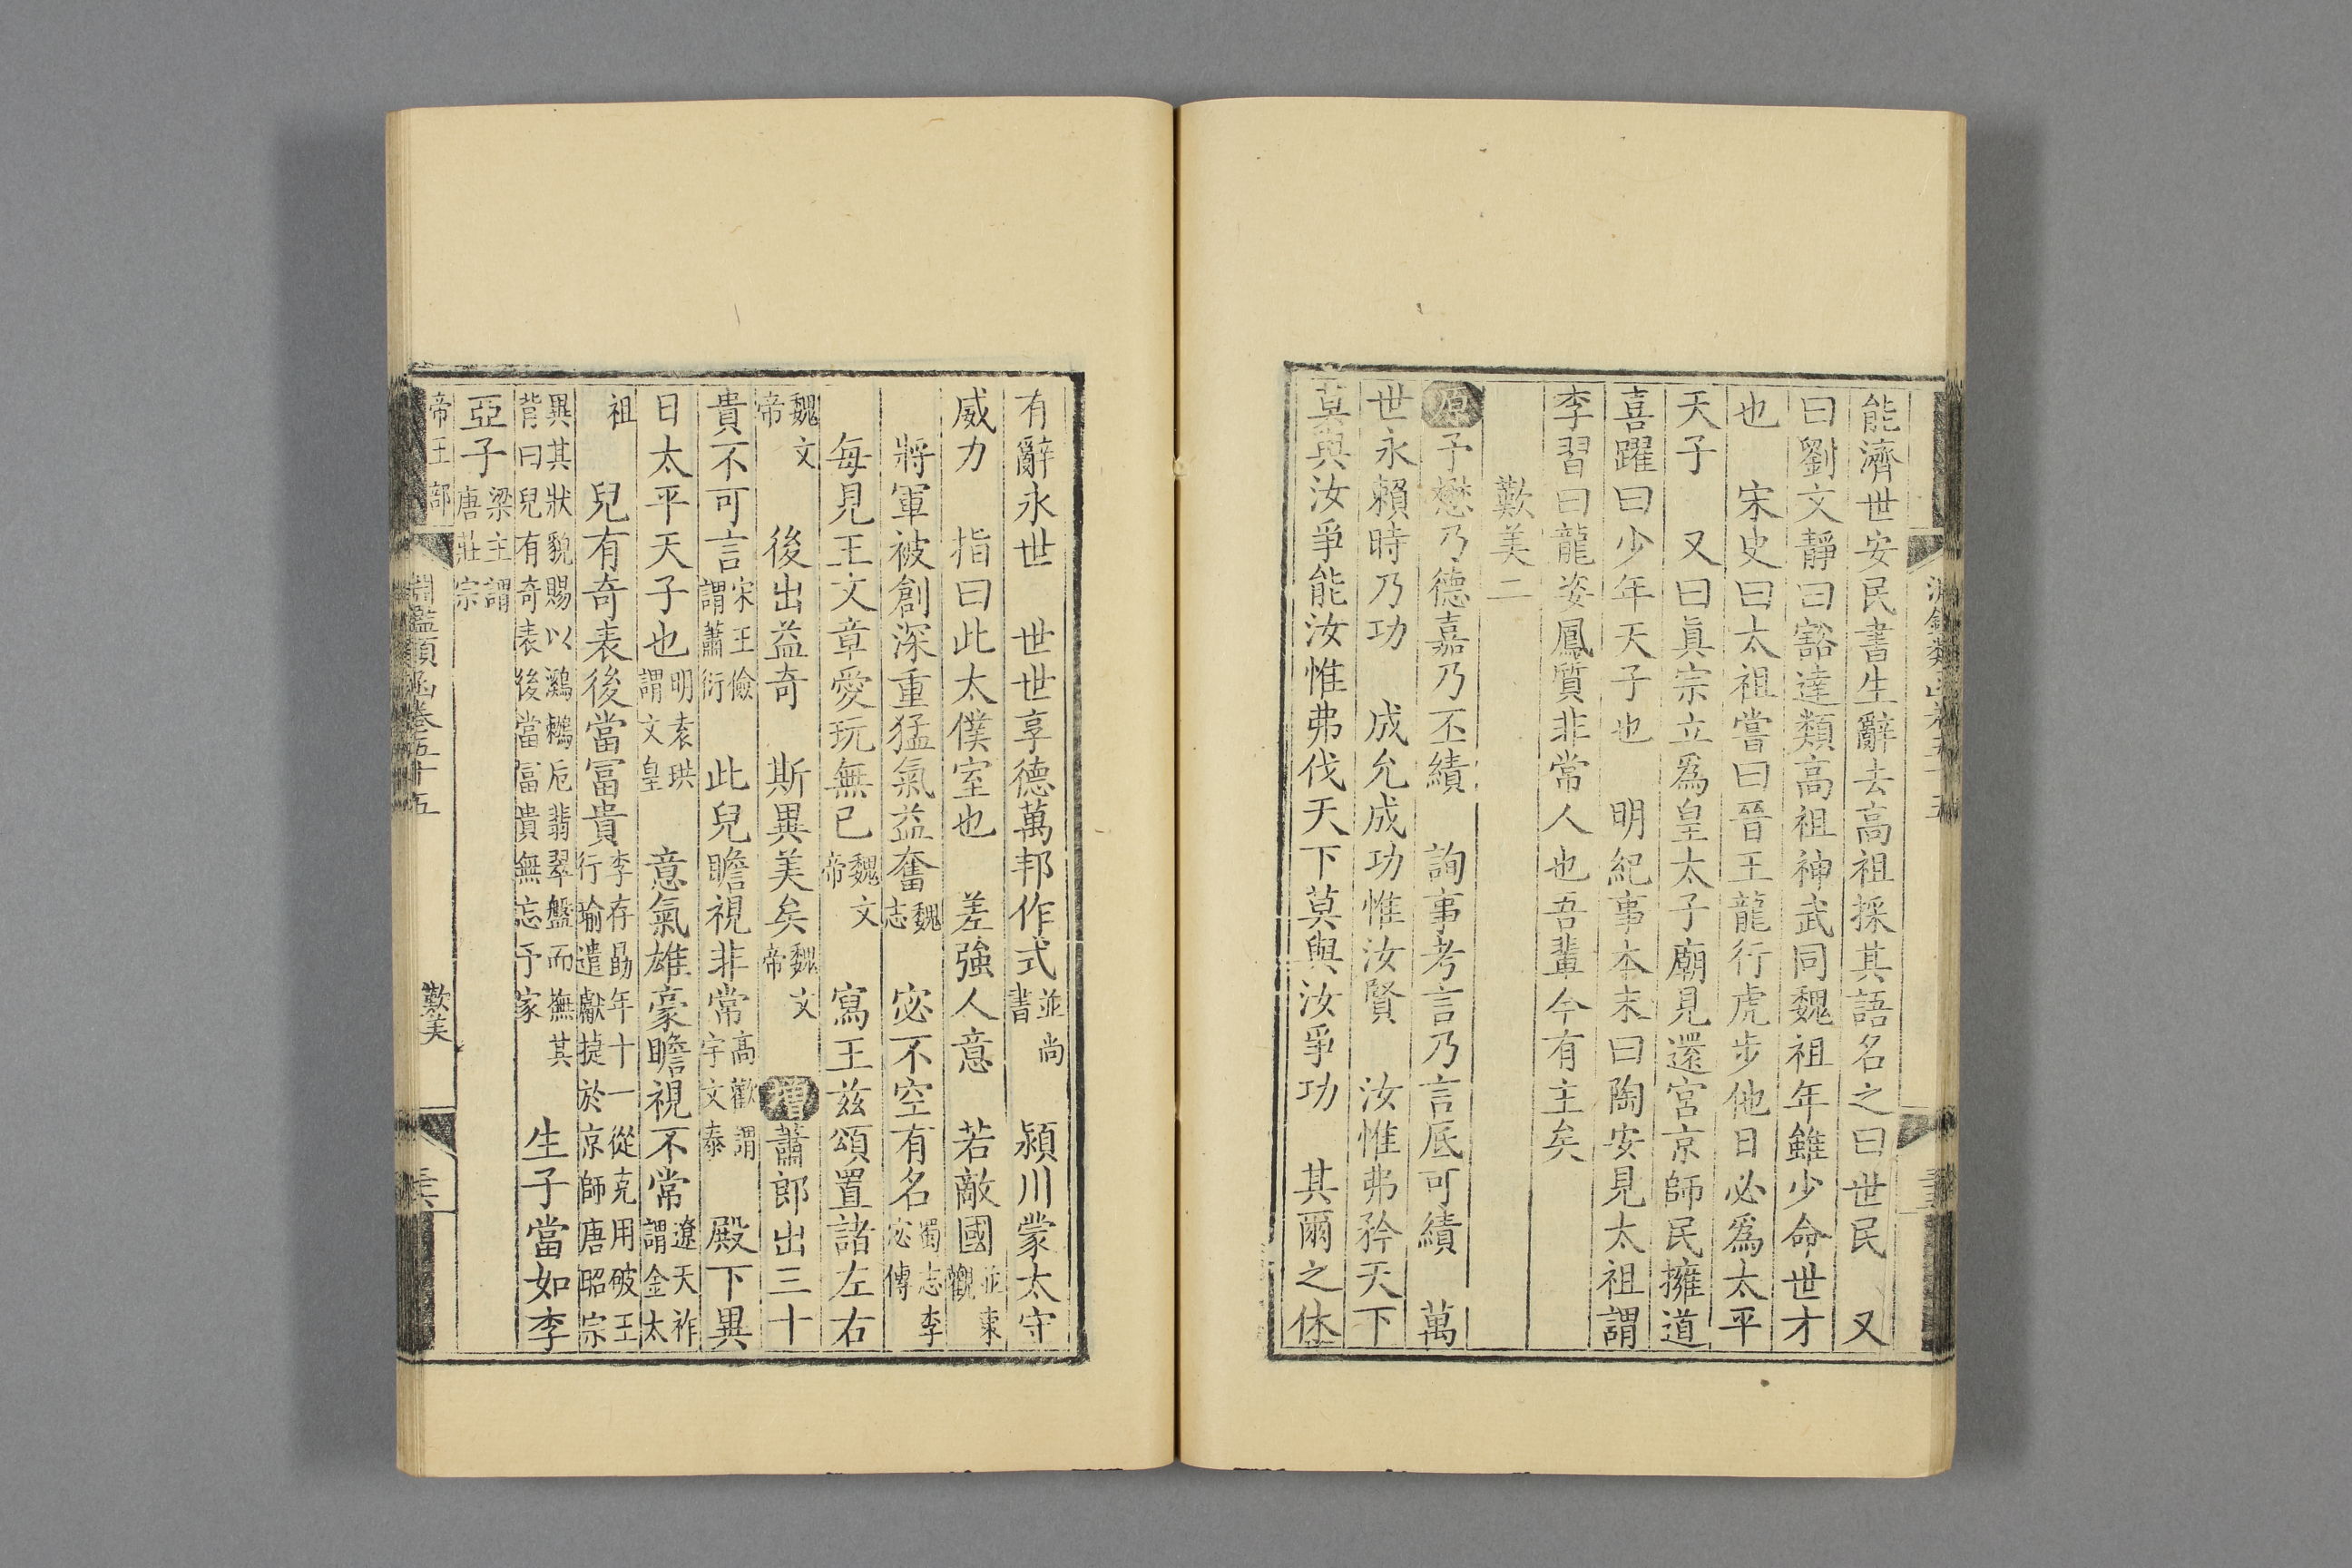 能濟世安民書生辭去高祖採其語名之曰世民　又
曰劉文靜曰豁達類高祖神武同魏祖年雖少命世才
也　宋史曰太祖嘗曰晉王龍行虎步他日必爲太平
天子　又曰眞宗立爲皇太子廟見還宮京師民擁道
喜躍曰少年天子也　明紀事本末曰陶安見太祖謂
李習曰龍姿鳳質非常人也吾輩今有主矣
歎美二
原予懋乃德嘉乃丕績　詢事考言乃言厎可績　萬
世永賴時乃功　成允成功惟汝賢　汝惟弗矜天下
莫與汝爭能汝惟弗伐天下莫與汝爭功　其爾之休
有辭永世　世世享德萬邦作式並尚書　潁川蒙太守
威力　指曰此太僕室也　差強人意　若敵國並東觀
將軍被創深重猛氣益奮魏志　宓不空有名蜀志李宓傳
每見王文章愛玩無已魏文帝　寫王兹頌置諸左右
魏文帝　後出益奇　斯異美矣魏文帝　增蕭郎出三十
貴不可言宋王儉謂蕭衍　此兒瞻視非常高歡謂宇文泰　殿下異
日太平天子也明袁珙謂文皇　意氣雄豪瞻視不常遼天祚謂金太
祖　兒有奇表後當冨貴李存勗年十一從克用破王行瑜遣獻捷於京師唐昭宗
異其狀貌賜以鸂鶒卮翡翠盤而撫其背曰兒有奇表後當冨貴無忘予家　生子當如李
亞子梁主謂唐莊宗
帝王部　淵鑑類函卷五十五　歎美